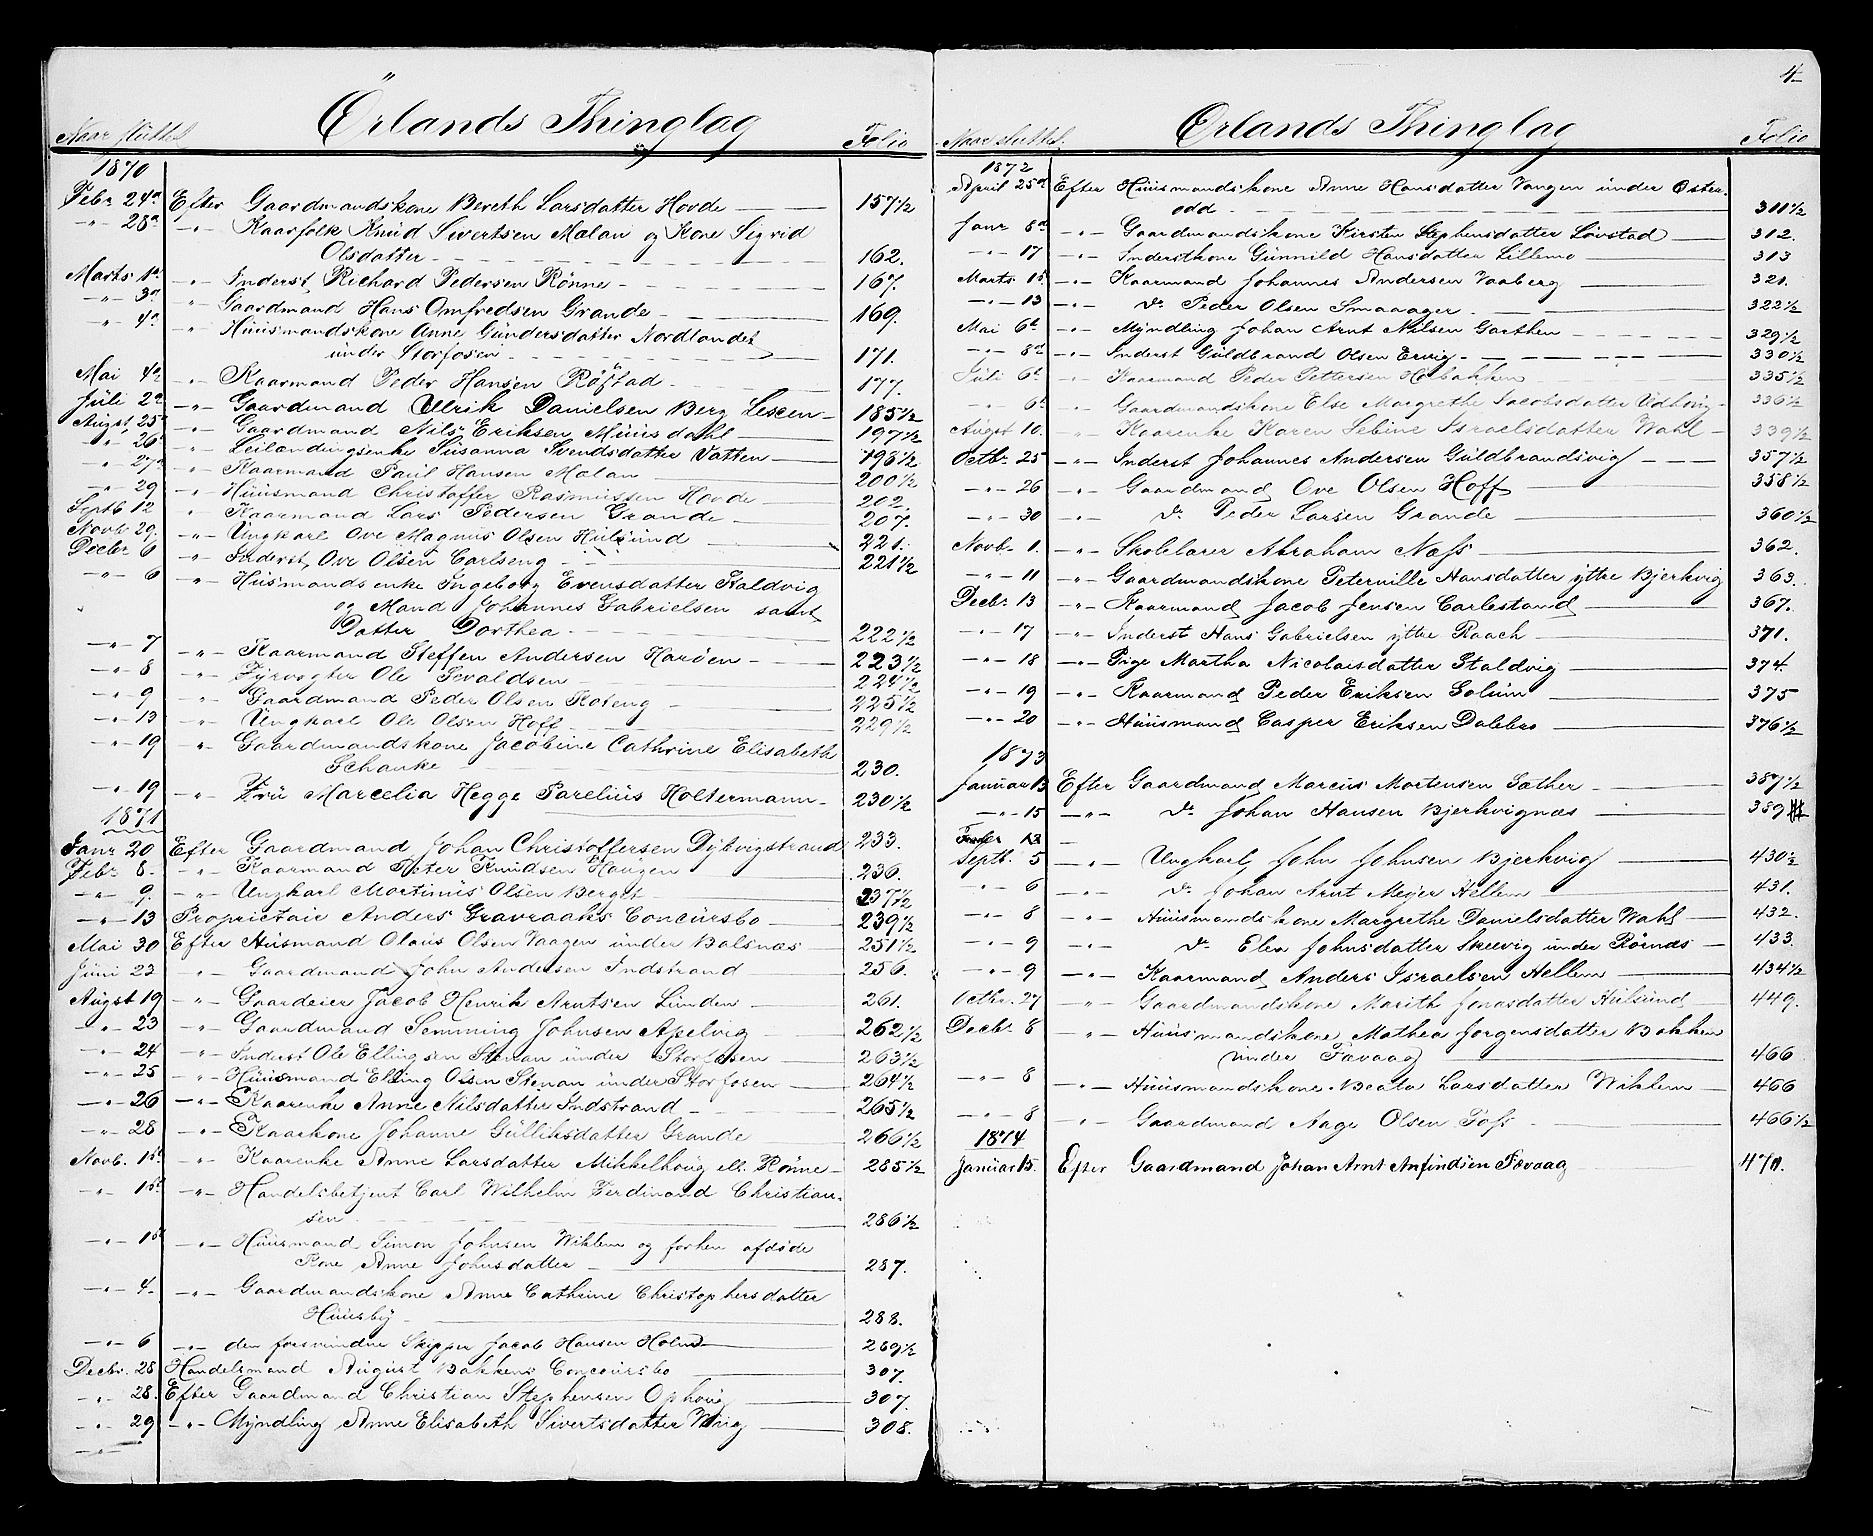 Ørlands Thinglag
Naar sluttet Folio
1870
Febr 24de Efter Gaardmandskone Bereth Larsdatter Hovde 157 1/2
-"- 28de -"- Kaarfolk Knud Sivertsen Malan og Kone Sigrid
Olsdatter 162.
Marts 1ste -"- Inderst Richard Pedersen Rönne 167.
-"- 3de -"- Gaardmand Hans Omfredsen Grande 169.
-"- 4de " Huusmandskone Anne Gundersdatter Nordlandet
under Storfosen 171.
Mai 4de " Kaarmand Peder Hansen Röstad 177.
Juli 2den -"- Gaardmand Ulrik Danielsen Berg Lexen 185 1/2
Augst. 25de -"- Gaardmand Nils Eriksen Muusdahl 197 1/2
-"- 26 " Leilændingsenke Susanna Svendsdatter Vatten 198 1/2
-"- 27de " Kaarmand Paul Hansen Malan 200 1/2
-"- 29 " Huusmand Christoffer Rasmussen Hovde 202.
Septb 12 " Kaarmand Lars Pedersen Grande 207.
Novb 29. -"- Ungkarl Ove Magnus Olsen Hulsund 221.
Decbr 6 -"- Inderst Ove Olsen Carlseng 221 1/2
-"- 6 " Huusmandsenke Ingeborg Evensdatter Staldvig
og Mand Johannes Gabrielsen samt
Datter Dorthea 222 1/2
-"- 7 -"- Kaarmand Steffen Andersen Haröen 223 1/2
-"- 8 -"- Fyrvogter Ole Sevaldsen 224 1/2
-"- 9 -"- Gaardmand Peder Olsen Roteng 225 1/2
-"- 13 -"- Ungkarl Ole Olsen Hoff 229 1/2
-"- 19 -"- Gaardmandskone Jacobine Cathrine Elisabeth
Schanke 230.
-"- 19 -"- Fru Marcelia Hegge Parelius Holtermann 230 1/2
1871
Janr 20 Efter Gaardmand Johan Christoffersen Dybvigstrand 233.
Febr 8. -"- Kaarmand Peter Knudsen Haugen 236.
-"- 9. -"- Ungkarl Martinus Olsen Berget 237 1/2
-"- 13 Proprietair Anders Gravraaks Concursbo 239 1/2
Mai 30 Efter Huusmand Olaus Olsen Vaagen under Balsnæs 251 1/2
Juni 23 -"- Gaardmand John Andersen Indstrand 256.
Augst 19 -"- Gaardeier Jacob Henrik Arntsen Lunden 261.
-"- 23 -"- Gaardmand Semming Johnsen Apelvig 262 1/2
-"- 24 -"- Inderst Ole Ellingsen Stenan under Storfosen 263 1/2
-"- 25 -"- Huusmand Elling Olsen Stenan under Storfosen 264 1/2
-"- 26 -"- Kaarenke Anne Nilsdatter Indstrand 265 1/2
-"- 28 -"- Kaarkone Johanne Gulliksdatter Grande 266 1/2
Novb. 1ste -"- Kaarenke Anne Larsdatter Mikkelhoug ell. Rönne 285 1/2
-"- 1ste -"- Handelsbetjent Carl Wilhelm Ferdinand Christian-
sen 286 1/2
-"- 1ste -"- Huusmand Simon Johnsen Wiklem og forhen afdöde
Kone Anne Johnsdatter 287.
-"- 4 -"- Gaardmandskone Anne Cathrine Christophersdatter
Huusby 288.
-"- 6 -"- den forsvundne Skipper Jacob Hansen Holm 289 1/2
Decbr. 28 Handelsmand August Bakkens Concoursbo 307.
-"- 28. Efter Gaardmand Christian Stephensen Ophoug 307.
-"- 29 -"- Myndling Anne Elisabeth Sivertsdatter 308.
4
Ørlands Thinglag
Naar sluttet. Folio
1872
April 25de Efter Huusmandskone Anne Hansdatter Vangen under Öster-
odd 311 1/2
Janr 8de -"- Gaardmandskone Kirsten Stephensdatter Lövstad 312.
-"- 17 -"- Inderstkone Gunnild Hansdatter Lillemo 313
Marts 1ste -"- Kaarmand Johannes Andersen Vaaberg 321.
-"- 13 -"- do Peder Olsen Smaaager 322 1/2
Mai 6te -"- Myndling Johan Arnt Nilsen Garthen 329 1/2
-"- 8de -"- Inderst Guldbrand Olsen Ervig 330 1/2
Juli 6te -"- Kaarmand Peder Pettersen Holbakken 335 1/2
" 6te -"- Gaardmandskone Else Margrethe Jacobsdatter Udhoug 336 1/2
Augst 10. -"- Kaarenke Karen Sebine Israelsdatter Wahl 339 1/2
Octbr 25 -"- Inderst Johannes Andersen Guldbrandsvig 357 1/2
-"- 26 -"- Gaardmand Ove Olsen Hoff 358 1/2
-"- 30 -"- do Peder Larsen Grande 360 1/2
Novb. 1. -"- Skolelærer Abraham Næss 362.
-"- 11 -"- Gaardmandskone Peternille Hansdatter yttre Bjerkvig 363.
Decbr 13 -"- Kaarmand Jacob Jensen Carlestand 367.
-"- 17 -"- Inderst Hans Gabrielsen yttre Raach 371.
-"- 18 -"- Pige Martha Nicolaisdatter Staldvig 374.
-"- 19 -"- Kaarmand Peder Eriksen Solum 375
-"- 20 -"- Huusmand Casper Eriksen Dalebro 376 1/2
1873
Januar 13 Efter Gaardmand Marcus Mortensen Sæther 387 1/2
-"- 15 -"- do Johan Hansen Bjerkvignæs 389
Septb. 5 -"- Ungkarl John Johnsen Bjerkvig 430 1/2
-"- 6 -"- do Johan Arnt Meyer Hellem 431.
-"- 8 -"- Huusmandskone Margrethe Danielsdatter Wahl 432.
-"- 9 -"- do Elen Johnsdatter Skeevig under Rörnæs 433.
-"- 9 -"- Kaarmand Anders Israelsen Hellem 434 1/2
Octbr. 27 -"- Gaardmandskone Marith Jonasdatter Hulsund 449.
Decbr 8 -"- Huusmandskone Mathea Jorgensdatter Bakken
under Fævaag 466
-"- 8 -"- Huusmandskone Beata Larsdatter Wiklem 466
-"- 8 -"- Gaardmand Aage Olsen Foss 466 1/2
1874
Januar 15. Efter Gaardmand Johan Arnt Anfindsen Fævaag 471.